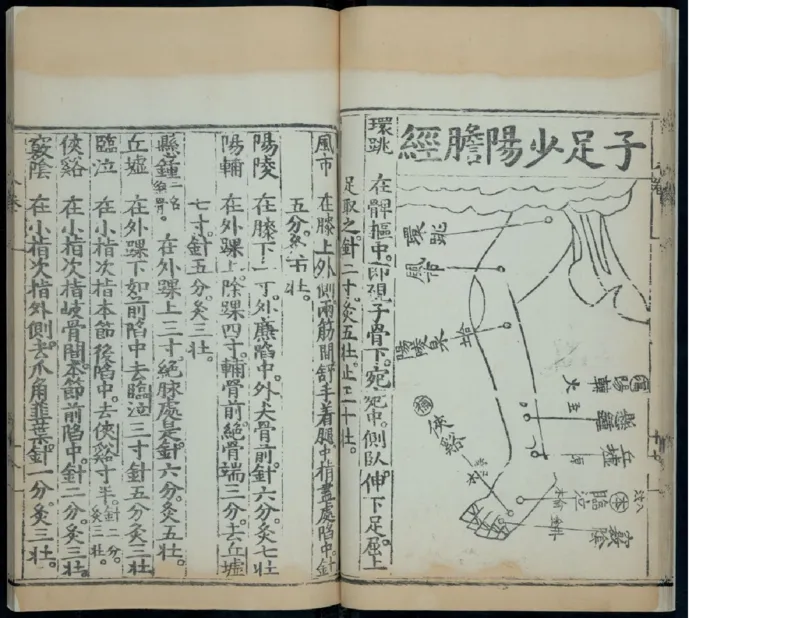 子足少陽膽經
環跳
風市
陽陵泉
合
陽輔
火
懸鍾
丘墟
原
臨泣
木
俠谿
竅陰
環跳 在髀樞中。即硯子骨下。宛宛中。側臥伸下足。屈上
足取之。針二寸。灸五壯。止五十壯。
風市 在膝上外側兩筋間舒手着腿中指盡處陷中。針
五分。灸五壯。
陽陵 在膝下一寸。外廉陷中。外夫骨前。針六分。灸七壯
陽輔 在外踝上。除踝四寸。輔骨前。絕骨端三分。去丘墟
七寸。針五分。灸三壯。
懸鍾 一名絕骨。 在外踝上三寸絕脉處是。針六分。灸五壯。
丘墟 在外踝下如前陷中去臨泣三寸針五分灸三壯
臨泣 在小指次指本節後陷中。去俠谿寸半。針二分。灸三壯。
俠谿 在小指次指岐骨間本節前陷中。針二分。灸三壯。
竅陰 在小指次指外側。去爪角韮葉。針一分。灸三壯。